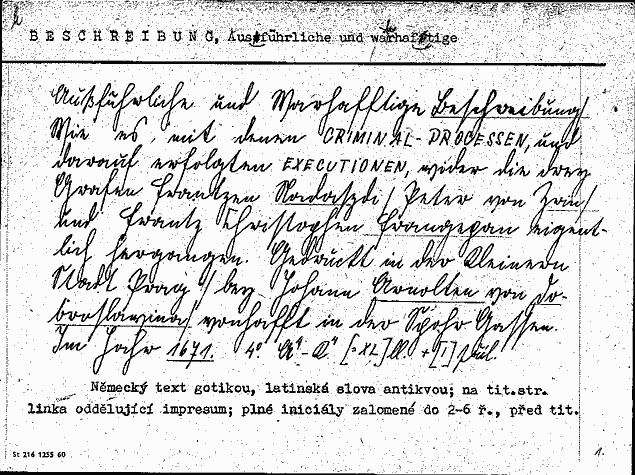 BESCHREIBUNG, Ausführliche und warhafftige
Außführliche und Warhafftige Beschreibung/
Wie es mit denen CRIMINAL-PROCESSEN, und
darauf erfolgten EXECUTIONEN, wider die drey
Grafen Frantzen Nadaszdi/ Peter von Zrin/
und Frantz Christophen Frangepan eigent-
lich hergangen. Gedruckt in der Kleinern
Stadt Prag/ bey Johann Arnolten von Do-
broslawina/ wonhafft in der Spohr Gassen.
Im Jahr 1671. 4°
Německý text gotikou, latinská slova antikvou; na tit.str.
linka oddělující impresum; plné iniciály zalomené do 2-6 ř., před tit.
St 216 1255 60
1.